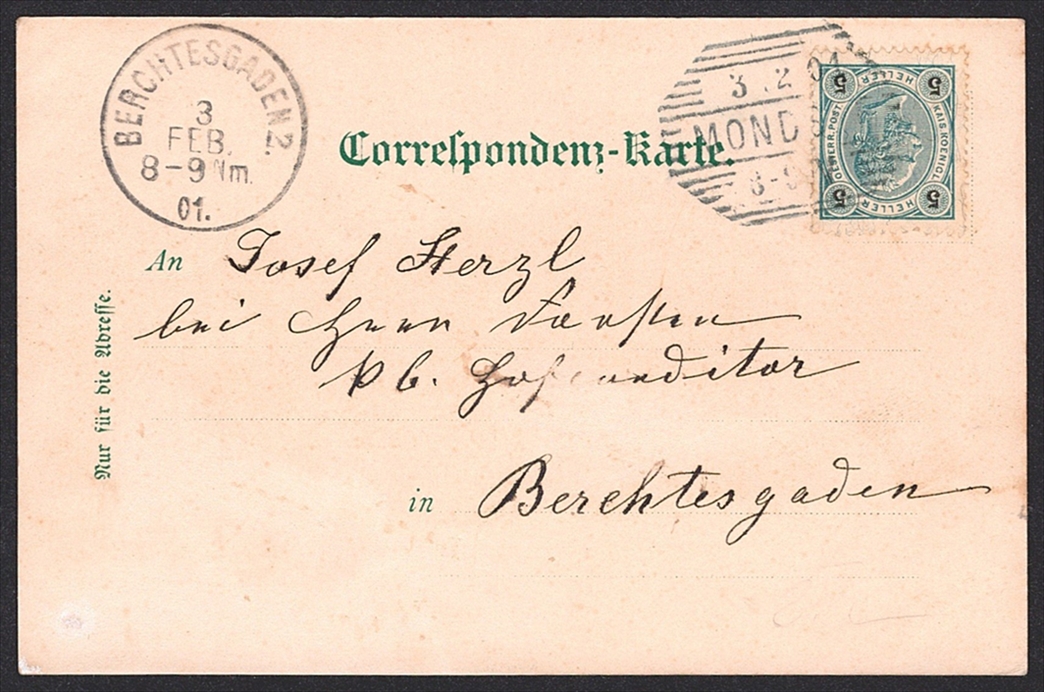 BERCHTESGADEN 2.
3
FEB.
8-9 Nm.
01.
3.2.01
MOND
8-9
5 HELLER 5
KAIS. KOENIGL.
OESTERR. POST
5 HELLER 5
Correspondenz-Karte.
An Josef Sterzl
bei Herrn
kb. Hofconditor
in Berchtesgaden
Nur für die Adresse.